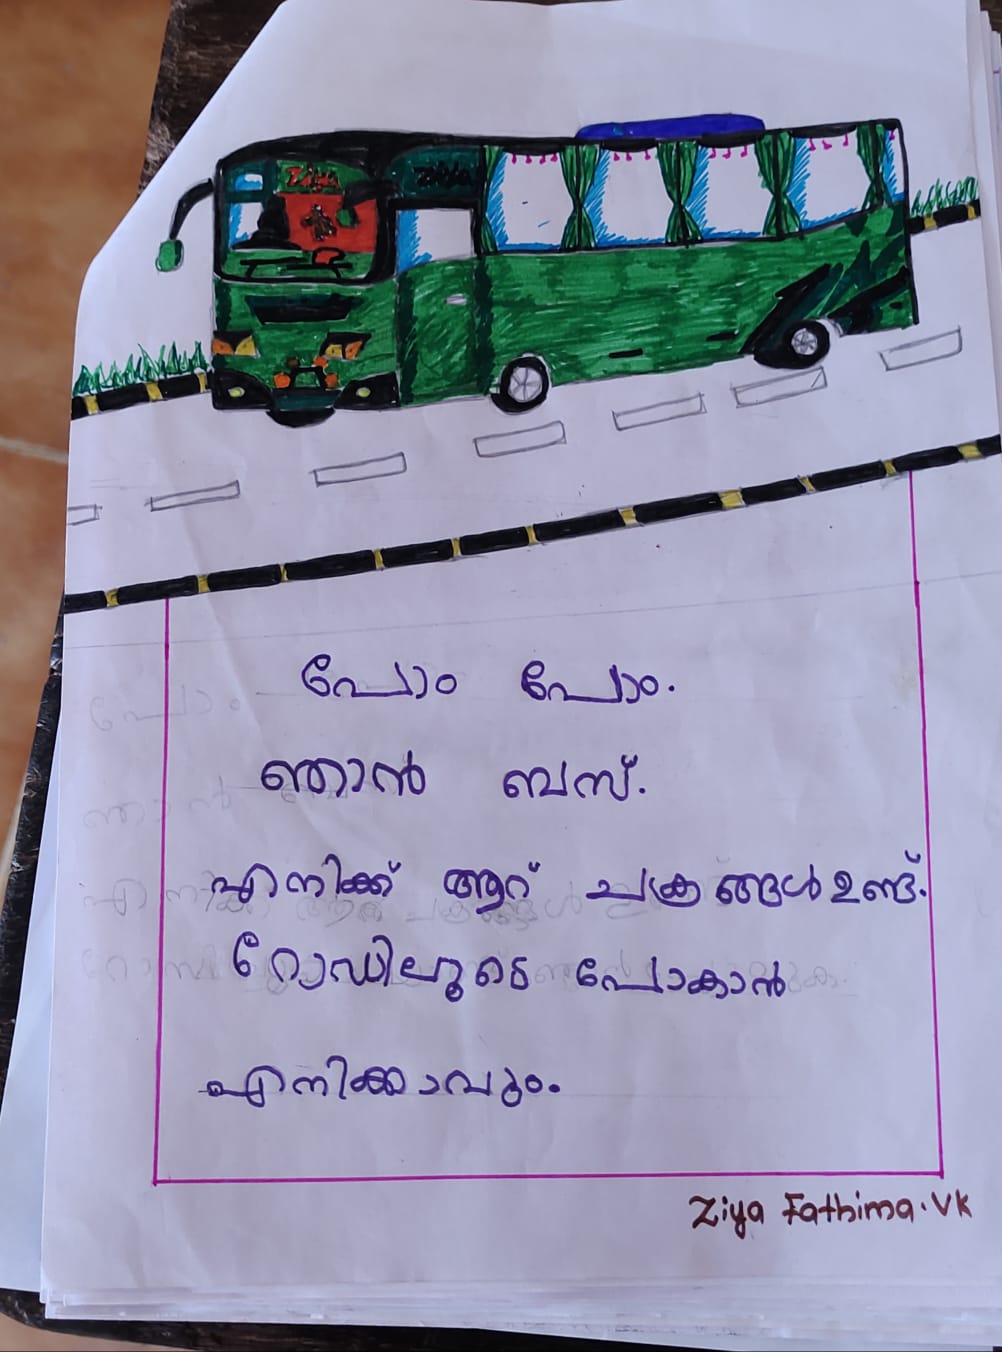 Ziya
Ziya
പോം പോം.
ഞാൻ ബസ്.
എനിക്ക് ആറ് ചക്രങ്ങൾ ഉണ്ട്.
റോഡിലൂടെ പോകാൻ
എനിക്കാവും.
Ziya Fathima.VK